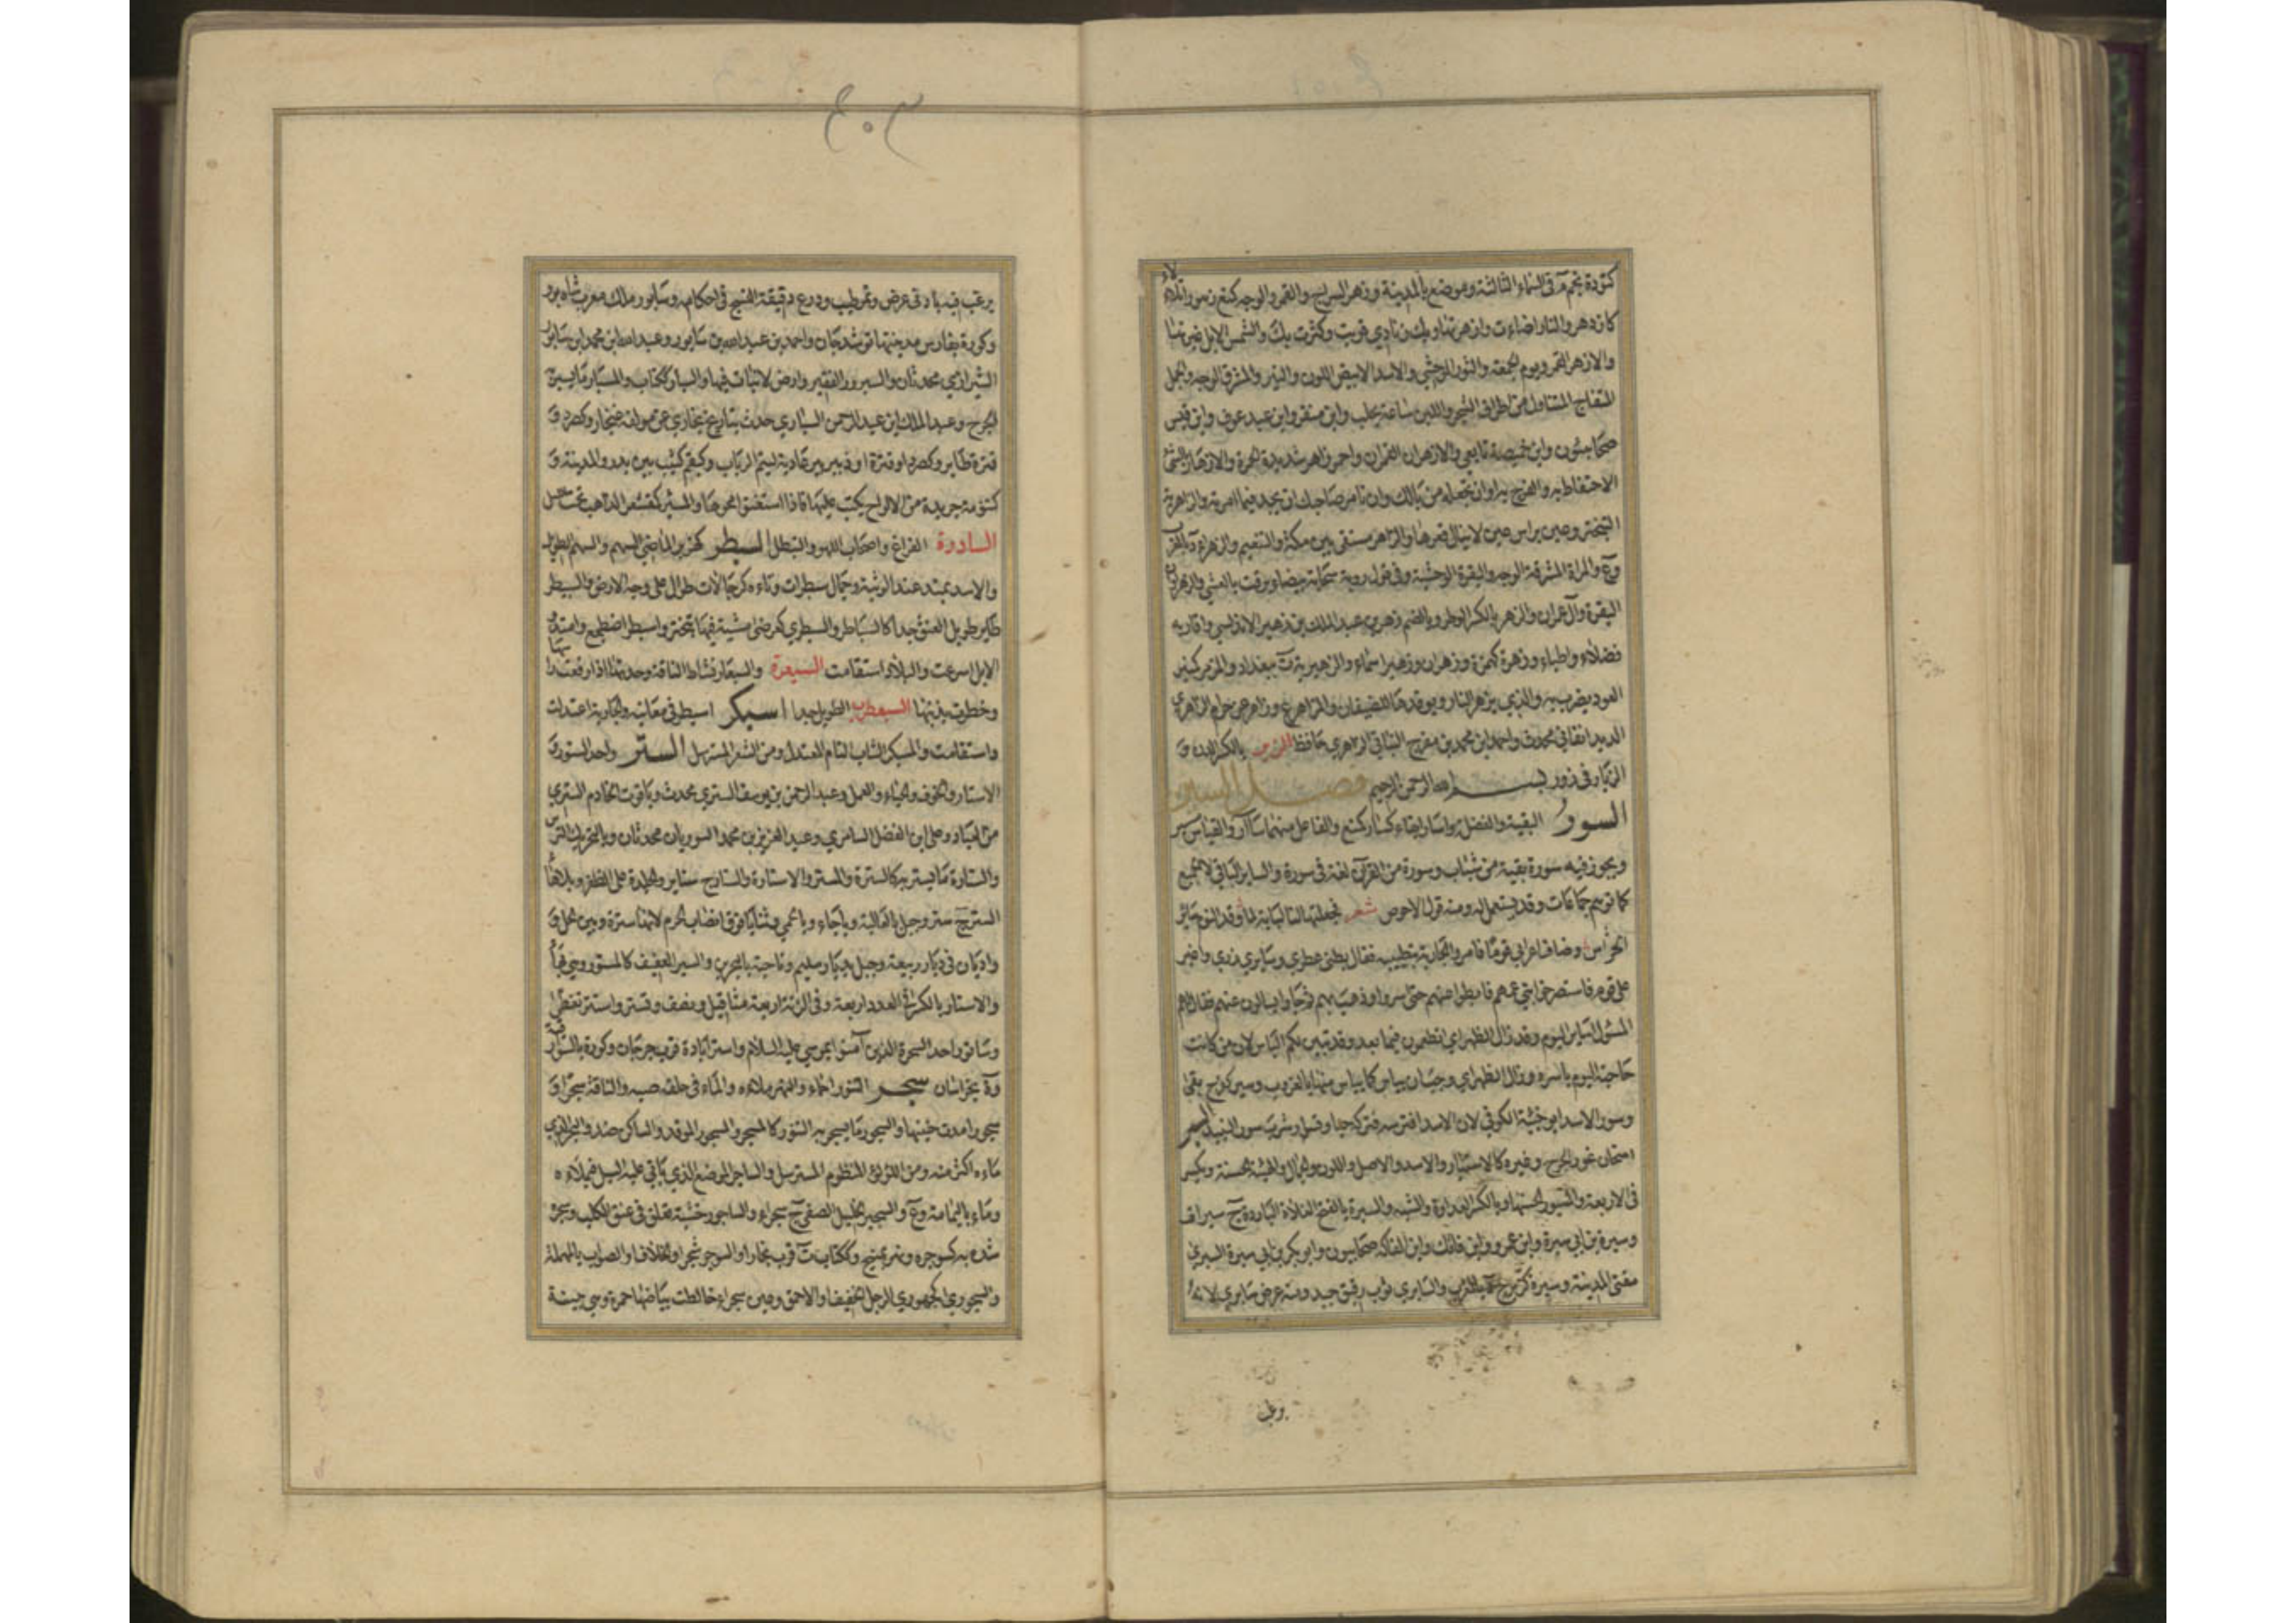 كتؤدة نجم في السماء الثالثة وموضع بالمدينة وزهر السراج والقمر والوجه كمنع زهورا تلألأ
كازدهر والنار اضاءت وازهرتها وبك زنادي قويت وكثرت بك والشمس الابل غيرتها
والازهر القمر ويوم الجمعة والثور الوحشي والاسد الابيض اللون والنير والمشرق الوجه والجمل
المتفاج المتناول من اطراف الشجر واللبن ساعة يحلب وابن منقر وابن عبد عوف وابن قيس
صحابيون وابن خميصة تابعي والازهران القمران واحمر زاهر شديد الحمرة والازدهار بالشئ
الاحتفاظ به والفرح به او ان تجعله من بالك وان تامر صاحبك ان يجد فيما امرته والزاهرية
التبختر وعين براس عين لا ينال قعرها والزاهر مستقى بين مكة والتنعيم والزهراء د بالمغرب
وع والمراة المشرقة الوجه والبقرة الوحشية وفي قول رؤبة سحابة بيضاء برقت بالعشي والزهراوان
البقرة وآل عمران والزهر بالكسر الوطر وبالضم زهر بن عبد الملك بن زهير الاندلسي واقاربه
فضلاء واطباء وزهرة كهمزة وزهران وزهير اسماء والزهيرية ة ببغداد والمزهر كمنبر
العود يضرب به والذي يزهر النار ويوقدها للضيفان والمزاهر ع وزاهر بن حزام
محدث واحمد بن محمد بن مفرج النباتي الزهري حافظ الزير بالكسر الدن و
الزيار في زور بسم الله الرحمن الرحيم فصل السين
السؤر البقية والفضلة واسار ابقاه كسار كمنع والفاعل منهما سآار والقياس مسئر
ويجوز فيه سؤرة بقية من شباب وسورة من القرآن لغة في سورة والساير الباقي لا الجميع
كما توهم جماعات وقد يستعمل له ومنه قول الاحوص شعر فجلتها لنا لبابة لما وقذ النوم ساير
الحراس وضاف اعرابي قوما فامروا الجارية بتطييبه فقال بطني عطري وسايري ذري واغير
على قوم فاستصرخوا بني عمهم فابطؤا عنهم حتى اسروا وذهب بهم ثم جاؤا يسألون عنهم فقال لهم
المسئول اساير اليوم وقد زال الظهر اي اتطمعون فيما بعد وقد تبين لكم الياس لان من كانت
حاجته اليوم باسره وزال الظهر اي وجب ان ييأس كما ييأس منها بالغروب وسئر كفرح بقي
وسؤر الاسد ابو خبيئة الكوفي لان الاسد افترسه فتركه حيا وتساءر شرب سؤر النبيذ السبر
امتحان غور الجرح وغيره كالاستبار والاسد والاصل واللون والجمال والهيئة الحسنة ويكسر
في الاربعة والمسبور الحسنها وبالكسر العداوة والشبه والسبرة بالفتح الغداة الباردة ج سبرات
وسبرة بن ابي سبرة وابن عمرو وابن فاتك وابن الفاكه صحابيون وابو بكر بن ابي سبرة السبري
مفتي المدينة والسابري ثوب رقيق جيد ومنه عرض سابري لانه
يرغب فيه بادنى عرض وتمر طيب ودرع دقيقة النسج في احكام وسابور ملك معرب شاه پور
وكورة بفارس مدينتها نوبندجان واحمد بن عبد الله بن سابور وعبد الله بن محمد بن سابور
الشيرازي محدثان والسبرور الفقير وارض لا نبات فيها والسبار ككتاب والمسبار ما يسبر به
الجرح وعبد الملك بن عبد الرحمن السباري حدث بتاريخ بخارى عن مولفه غنجار وكصرد و
قترة طاير وكصرد او قترة او زبير بير عادية لتيم الرباب وكبقم كثيب بين بدر والمدينة و
كتنومة جريدة من الالواح يكتب عليها فاذا استغنوا محوها والمسبئر كقشعر الذاهب تحت الليل
السادرة الفراغ واصحاب اللهو والتبطل السبطر كهزبر الماضي الشهم والسهم الطويل
والاسد يمتد عند الوثبة وجمال سبطرات وتاءه كرجالات طوال على وجه الارض والسبيطر
طاير طويل العنق جدا كالسباطر والسبطري كعرضى مشية فيها تبختر واسبطر اضطجع وامتد و
الابل اسرعت والبلاد استقامت السبعرة والسبعار نشاط الناقة وحدتها اذا رفعت راسها
وخطرت بذنبها السبعطرى الطويل جدا اسبكر اسبطر في معانيه والجارية اعتدلت
واستقامت والمسبكر الشاب التام المعتدل ومن الشعر المسترسل الستر واحد الستور و
الاستار والخوف والحياء والعمل وعبد الرحمن بن يوسف الستري محدث وياقوت الخادم الستري
من العباد وعلي ابن الفضل السامري وعبد العزيز بن محمد الستوريان محدثان وبالتحريك الترس
والستارة ما يستر به كالسترة والمستر والاستارة والستارج ستاير والجلدة على الظفر وبلا هاء
الستر ج ستر وجبل بالعالية وباجاء وبالحمى وثنايا فوق انصاب الحرم لانها سترة وبين الحل و
واديان في ديار ربيعة وجبل بديار سليم وناحية بالبحرين والستير العفيف كالمستور وهي بهاء
والاستار بالكسر في العدد اربعة وفي الزنة اربعة مثاقيل ونصف وتستر واستتر تغطى
وساتور احد السحرة الذين آمنوا بموسى عليه السلام واستراباد ة قرب جرجان وكورة بالسواد
وة بخراسان سجر التنور احماه والنهر ملاءه والماء في حلقه صبه والناقة سجرا و
سجورا مدت حنينها والسجور ما يسجر به التنور كالمسجر والمسجور الموقد والساكن ضد والبحر الذي
ماءه اكثر منه ومن اللؤلؤ المنظوم المسترسل والساجر الموضع الذي ياتي عليه السيل فيملأه
وماء باليمامة وع والسجير الخليل الصفي ج سجراء والساجور خشبة تعلق في عنق الكلب وسجره
شده به كسوجره ونهر بمنبج وككتاب ة قرب بخارا والسوجر شجر او الخلاف او الصواب بالمهملة
والسجوري كجهوري الرجل الخفيف او الاحمق وعين سجراء خالطت بياضها حمرة وهي بينة